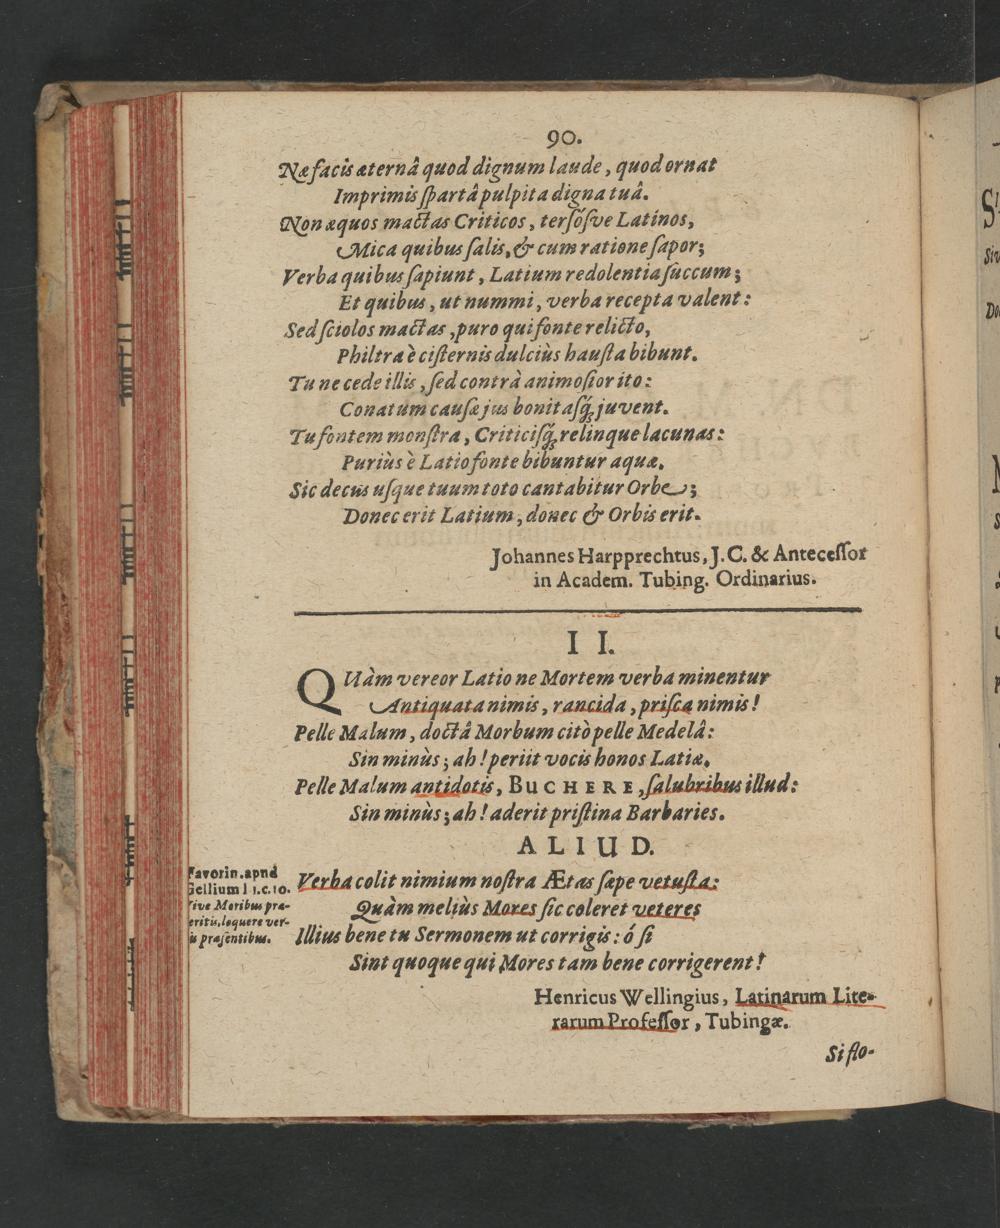 90.
Næ facis æternâ quod dignum laude, quod ornat
Imprimis ſpartâ pulpita digna tuâ.
Non æquos mactas Criticos, terſósve Latinos,
Mica quibus ſalis, & cum ratione ſapor;
Verba quibus ſapiunt, Latium redolentia ſuccum;
Et quibus, ut nummi, verba recepta valent:
Sed ſciolos mactas, puro qui fonte relicto,
Philtra è ciſternis dulciùs hauſta bibunt.
Tu ne cede illis, ſed contrà animoſior ito:
Conatum cauſæ jus bonitasq́; juvent.
Tu fontem monſtra, Criticisq́; relinque lacunas:
Puriùs è Latio fonte bibuntur aquæ.
Sic decus uſque tuum toto cantabitur Orbe;
Donec erit Latium, donec & Orbis erit.
Johannes Harpprechtus, J.C. & Anteceſſor
in Academ. Tubing. Ordinarius.
II.
QUàm vereor Latio ne Mortem verba minentur
Antiquata nimis, rancida, priſca nimis!
Pelle Malum, doctâ Morbum citò pelle Medelâ:
Sin minùs; ah! periit vocis honos Latiæ.
Pelle Malum antidotis, BUCHERE, ſalubribus illud:
Sin minùs; ah! aderit priſtina Barbaries.
ALIUD.
Favorin. apud
Gellium l 1. c. 10.
Vive Moribus præ-
eritis, loquere ver-
is præſentibus.
Verba colit nimium noſtra Ætas ſæpe vetuſta:
Quàm meliùs Mores ſic coleret veteres
Illius bene tu Sermonem ut corrigis: ó ſi
Sint quoque qui Mores tam bene corrigerent!
Henricus Wellingius, Latinarum Lite-
rarum Profeſſor, Tubingæ.
Si flo-